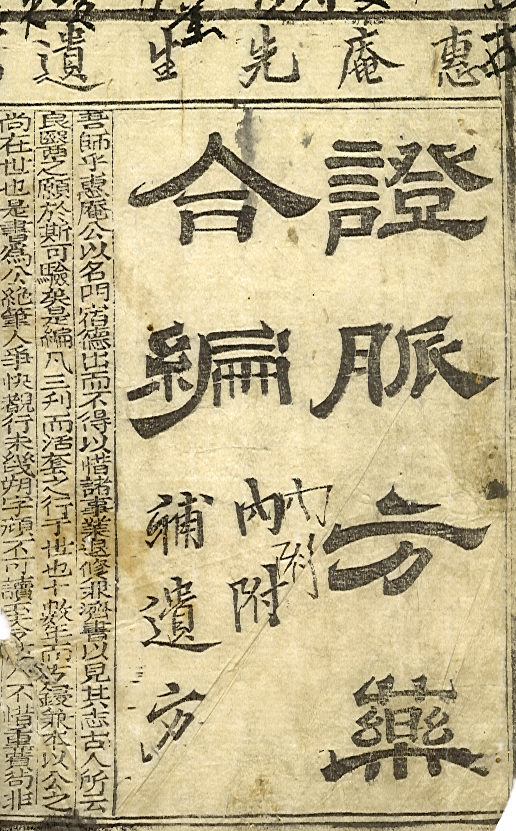 惠庵先生遺
證脈方藥
合編
內附
內附
補遺方
吾師乎惠庵公以名門宿德出而不得以惜諸事業退修濟書以見其志古人所云
良醫之願於斯可驗矣是編凡三刊而活套之行于世也十數年而
尚在世也是書爲公絶筆人爭快覩行未幾朔字頑不可讀人不惜重費尚非